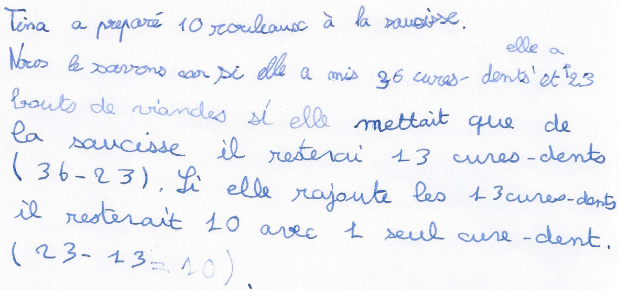 Tina a preparé 10 rouleaux à la saucisse.
Nous le savons car si elle a mis 36 cures-dents et elle a 23
bouts de viandes si elle mettait que de
la saucisse il resterai 13 cures-dents
(36-23). Si elle rajoute les 13 cures-dents
il resterait 10 avec 1 seul cure-dent.
(23-13=10).